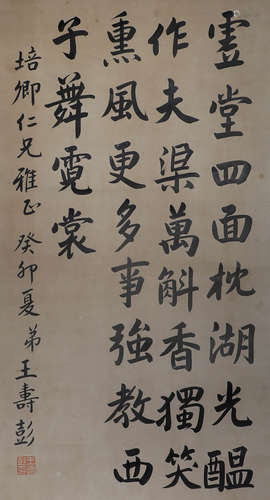 虚堂四面枕湖光醞
作夫渠萬斛香獨笑
熏風更多事強教西
子舞霓裳
培卿仁兄雅正 癸卯夏 弟王壽彭